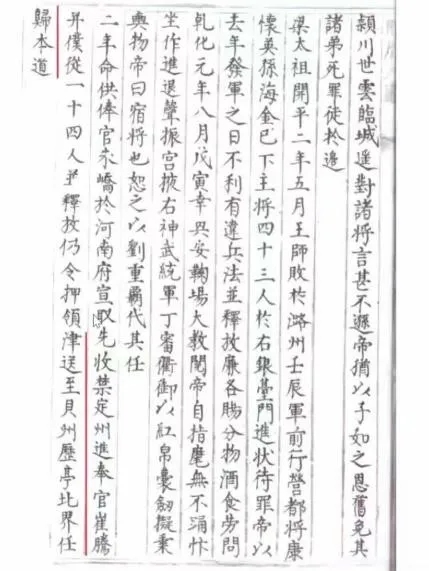 潁川世雲臨城遥對諸將言甚不遜帝猶以子如之恩舊免其
諸弟死罪徒於邉
梁太祖開平二年五月王師敗於潞州壬辰軍前行營都將康
懷英孫海金巳下主將四十三人於右銀臺門進狀待罪帝以
去年發軍之日不利有違兵法並釋放廉各賜分物酒食勞問
乾化元年八月戊寅幸興安鞠場大教閱帝自指麾無不涌忭
坐作進退聲振宫掖右神武統軍丁審衢御以紅帛囊劒擬乗
輿物帝曰宿將也恕之以劉重霸代其任
二年命供俸官永嶠於河南府宣取先收禁定州進奉官崔騰
并僕從一十四人並釋放仍令押領津送至貝州歷亭北界任
歸本道